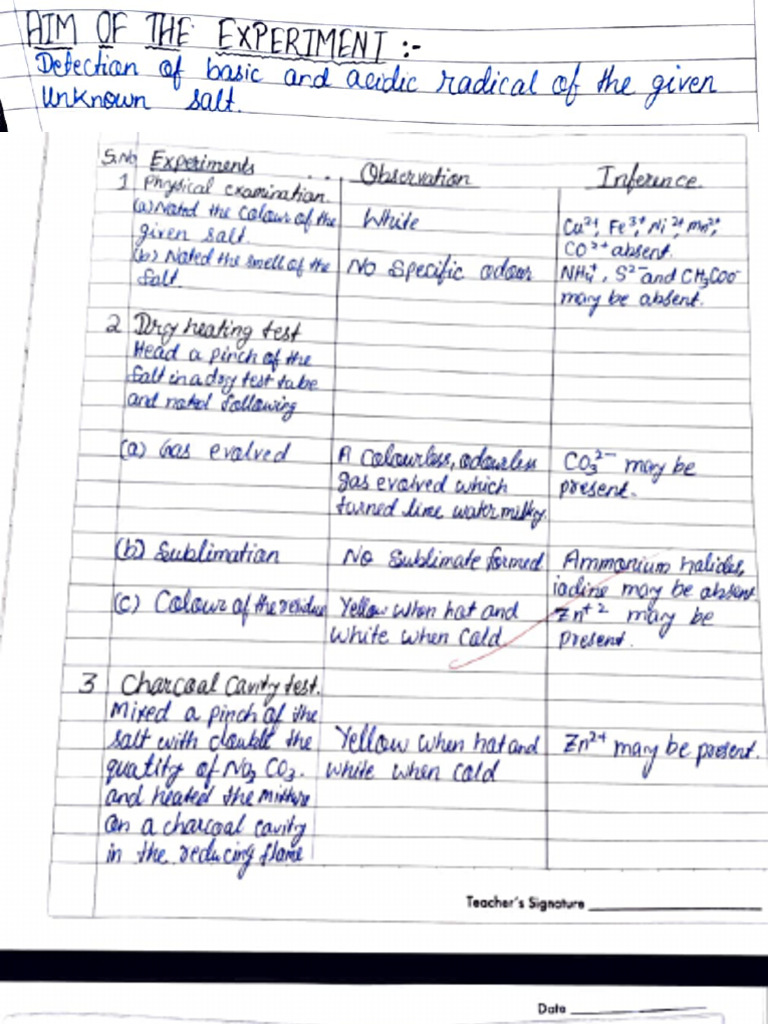 AIM OF THE EXPERIMENT :-
Detection of basic and acidic radical of the given
Unknown salt.
S.No Experiments .. . Observation Inference.
1 Physical examination.
(a) Noted the colour of the White Cu2+, Fe3+, Ni2+, mn2+,
given salt. CO2+ absent.
(b) Noted the smell of the No Specific odour NH4+, S2- and CH3COO-
Salt. may be absent.
2 Dry heating test
Head a pinch of the
salt in a dry test tube
and noted following
(a) Gas evolved A Colourless, odourless CO3 2- may be
gas evolved which present.
turned lime water milky.
(b) Sublimation No Sublimate formed Ammonium halides,
iodine may be absent
(c) Colour of the residue Yellow when hot and Zn+2 may be
white when cold present.
3 Charcoal Cavity test.
Mixed a pinch of the
salt with double the Yellow when hot and Zn2+ may be present.
quatity of Na2CO3. white when cold
and heated the mixture
on a charcoal cavity
in the reducing flame
Teacher's Signature
Date